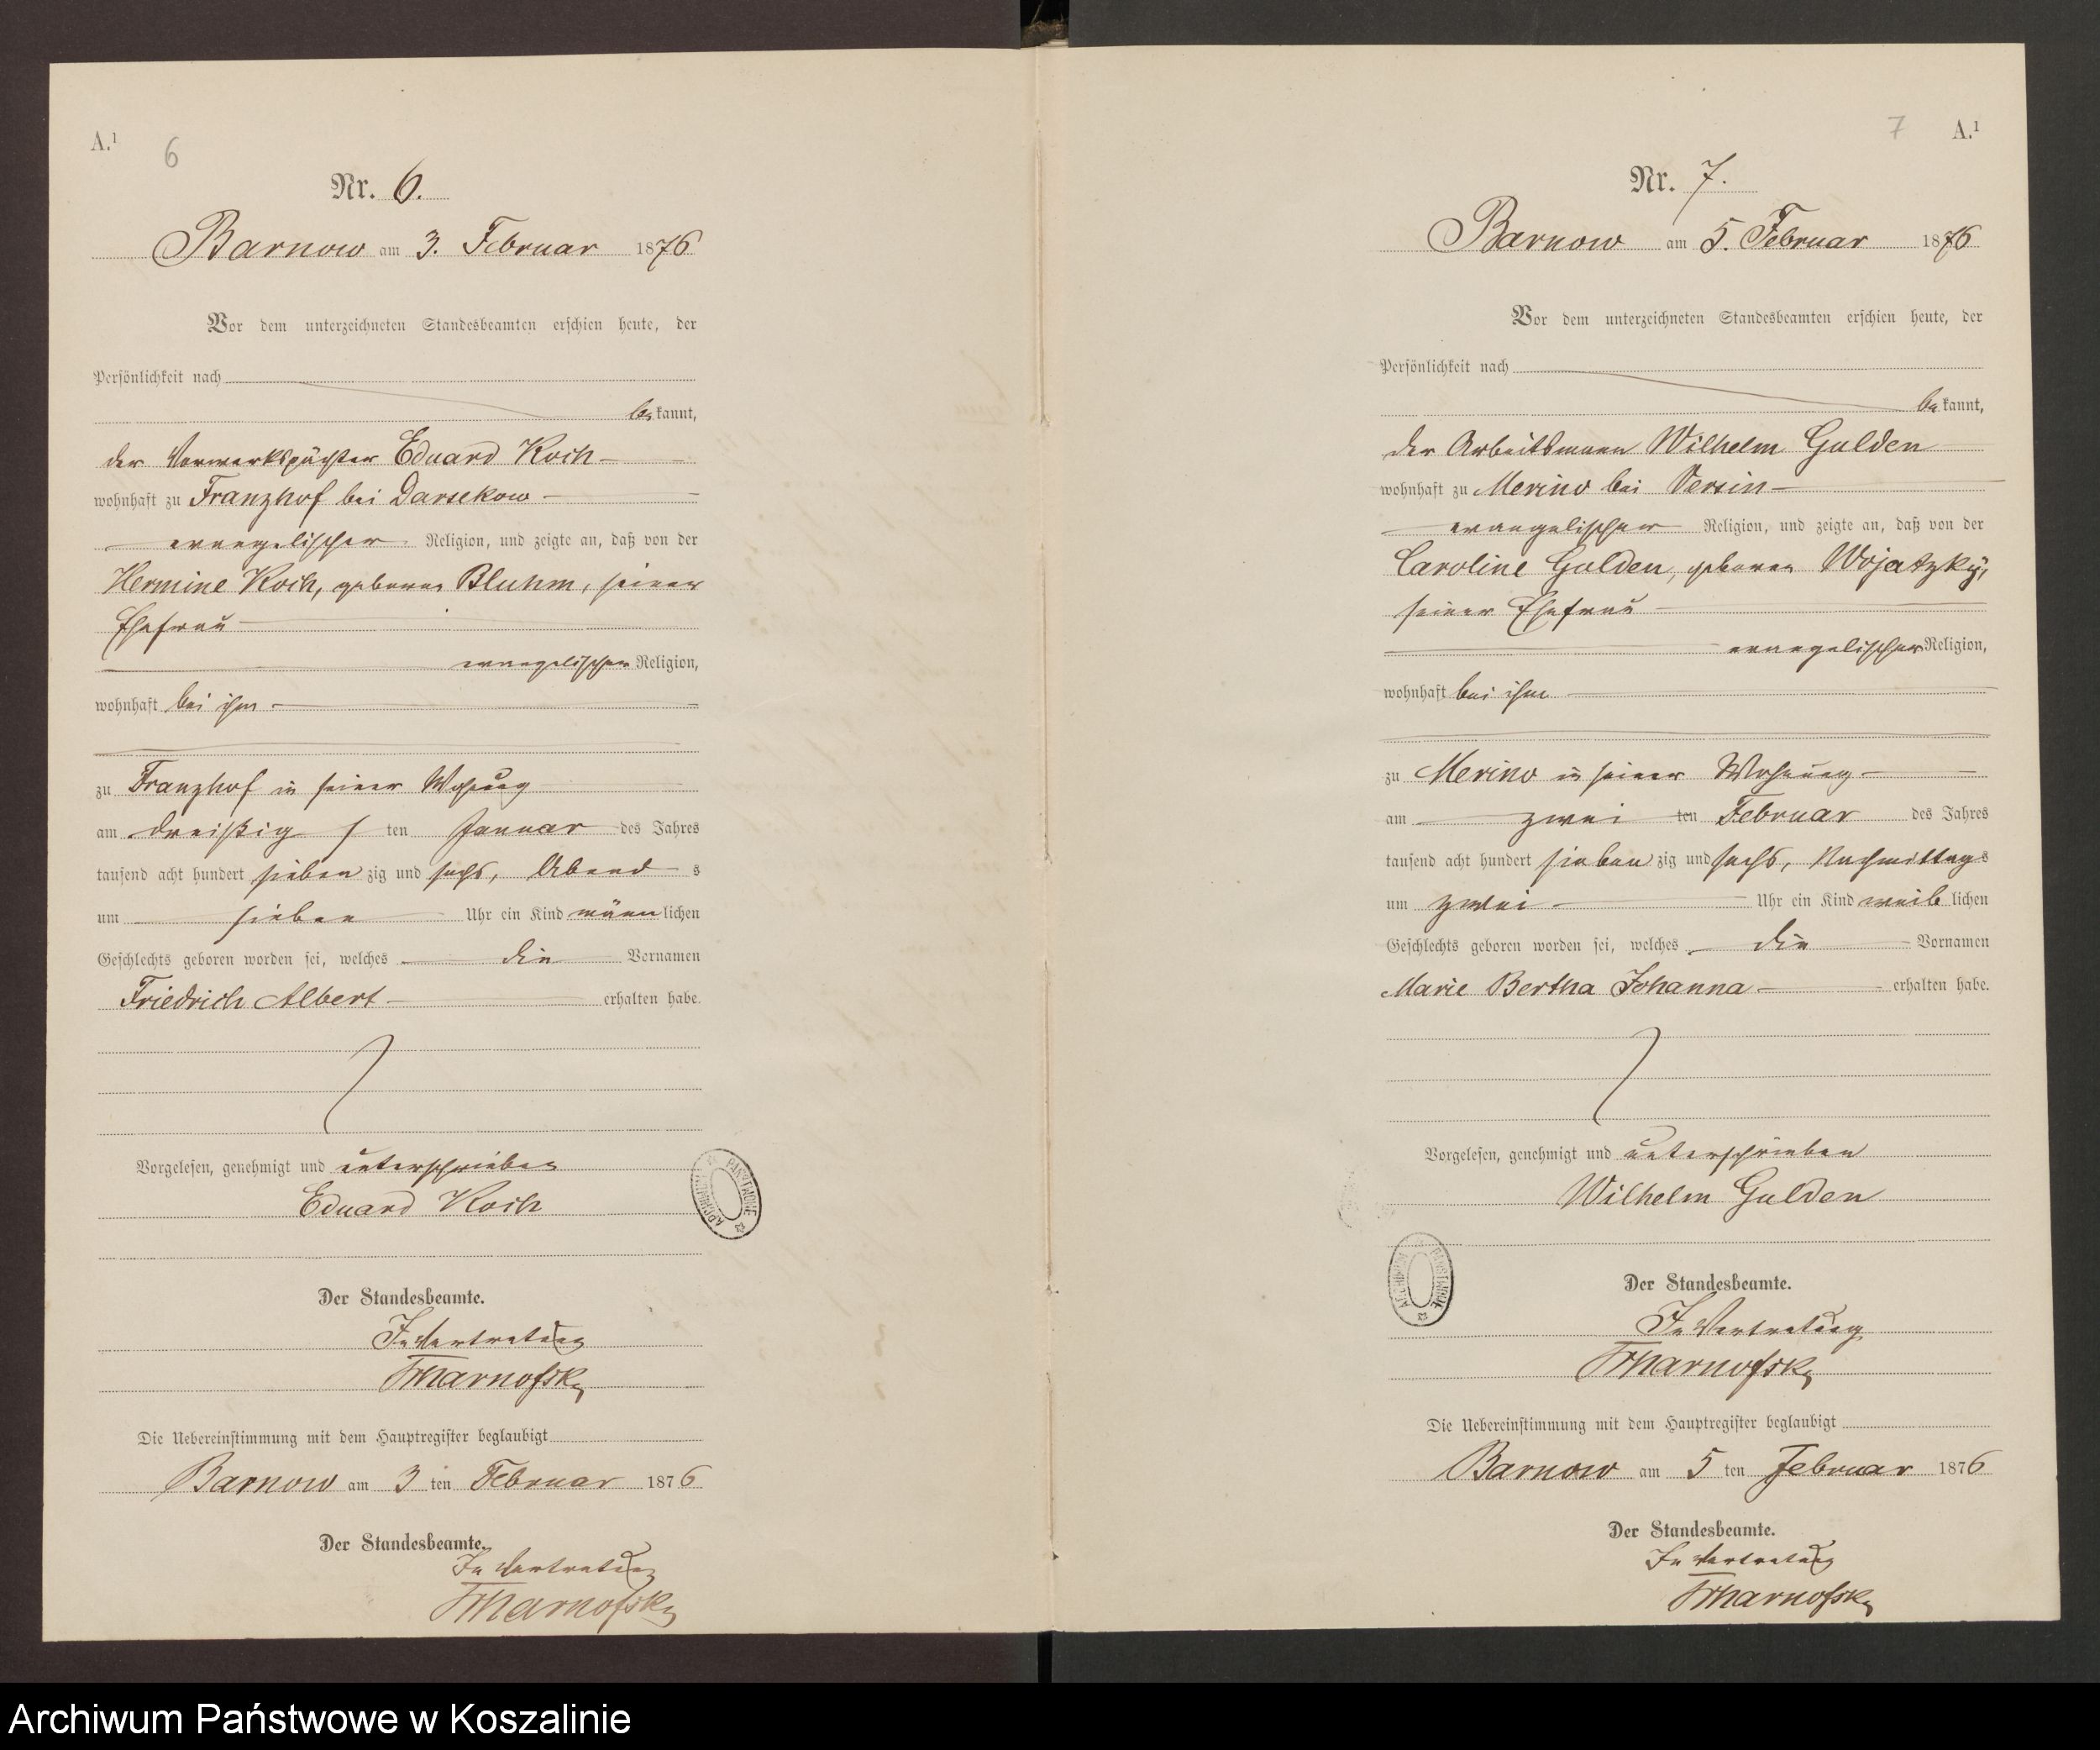 A.¹
6
Nr. 6.
Barnow am 3. Februar 1876
Vor dem unterzeichneten Standesbeamten erschien heute, der
Persönlichkeit nach
bekannt,
der Vorwerkspächter Eduard Koch
wohnhaft zu Franzhof bei Darsekow
evangelischer Religion, und zeigte an, daß von der
Hermine Koch, geborene Bluhm, seiner
Ehefrau
evangelischer Religion,
wohnhaft bei ihm
zu Franzhof in seiner Wohnung
am dreißig ten Januar des Jahres
tausend acht hundert sieben zig und sechs, Abend s
um sieben Uhr ein Kind männlichen
Geschlechts geboren worden sei, welches die Vornamen
Friedrich Albert erhalten habe.
Vorgelesen, genehmigt und unterschrieben
Eduard Koch
ARCHIWUM PAŃSTWOWE
Der Standesbeamte.
In Vertretung
Die Uebereinstimmung mit dem Hauptregister beglaubigt
Barnow am 3 ten Februar 1876
Der Standesbeamte.
In Vertretung
7 A.¹
Nr. 7.
Barnow am 5. Februar 1876
Vor dem unterzeichneten Standesbeamten erschien heute, der
Persönlichkeit nach
bekannt,
der Arbeitsmann Wilhelm Gulden
wohnhaft zu Merino bei Versin
evangelischer Religion, und zeigte an, daß von der
Caroline Gulden, geborene Wojatzky,
seiner Ehefrau
evangelischer Religion,
wohnhaft bei ihm
zu Merino in seiner Wohnung
am zwei ten Februar des Jahres
tausend acht hundert sieben zig und sechs, Nachmittags
um zwei Uhr ein Kind weiblichen
Geschlechts geboren worden sei, welches die Vornamen
Marie Bertha Johanna erhalten habe.
Vorgelesen, genehmigt und unterschrieben
Wilhelm Gulden
ARCHIWUM PAŃSTWOWE
Der Standesbeamte.
In Vertretung
Die Uebereinstimmung mit dem Hauptregister beglaubigt
Barnow am 5 ten Februar 1876
Der Standesbeamte.
In Vertretung
Archiwum Państwowe w Koszalinie